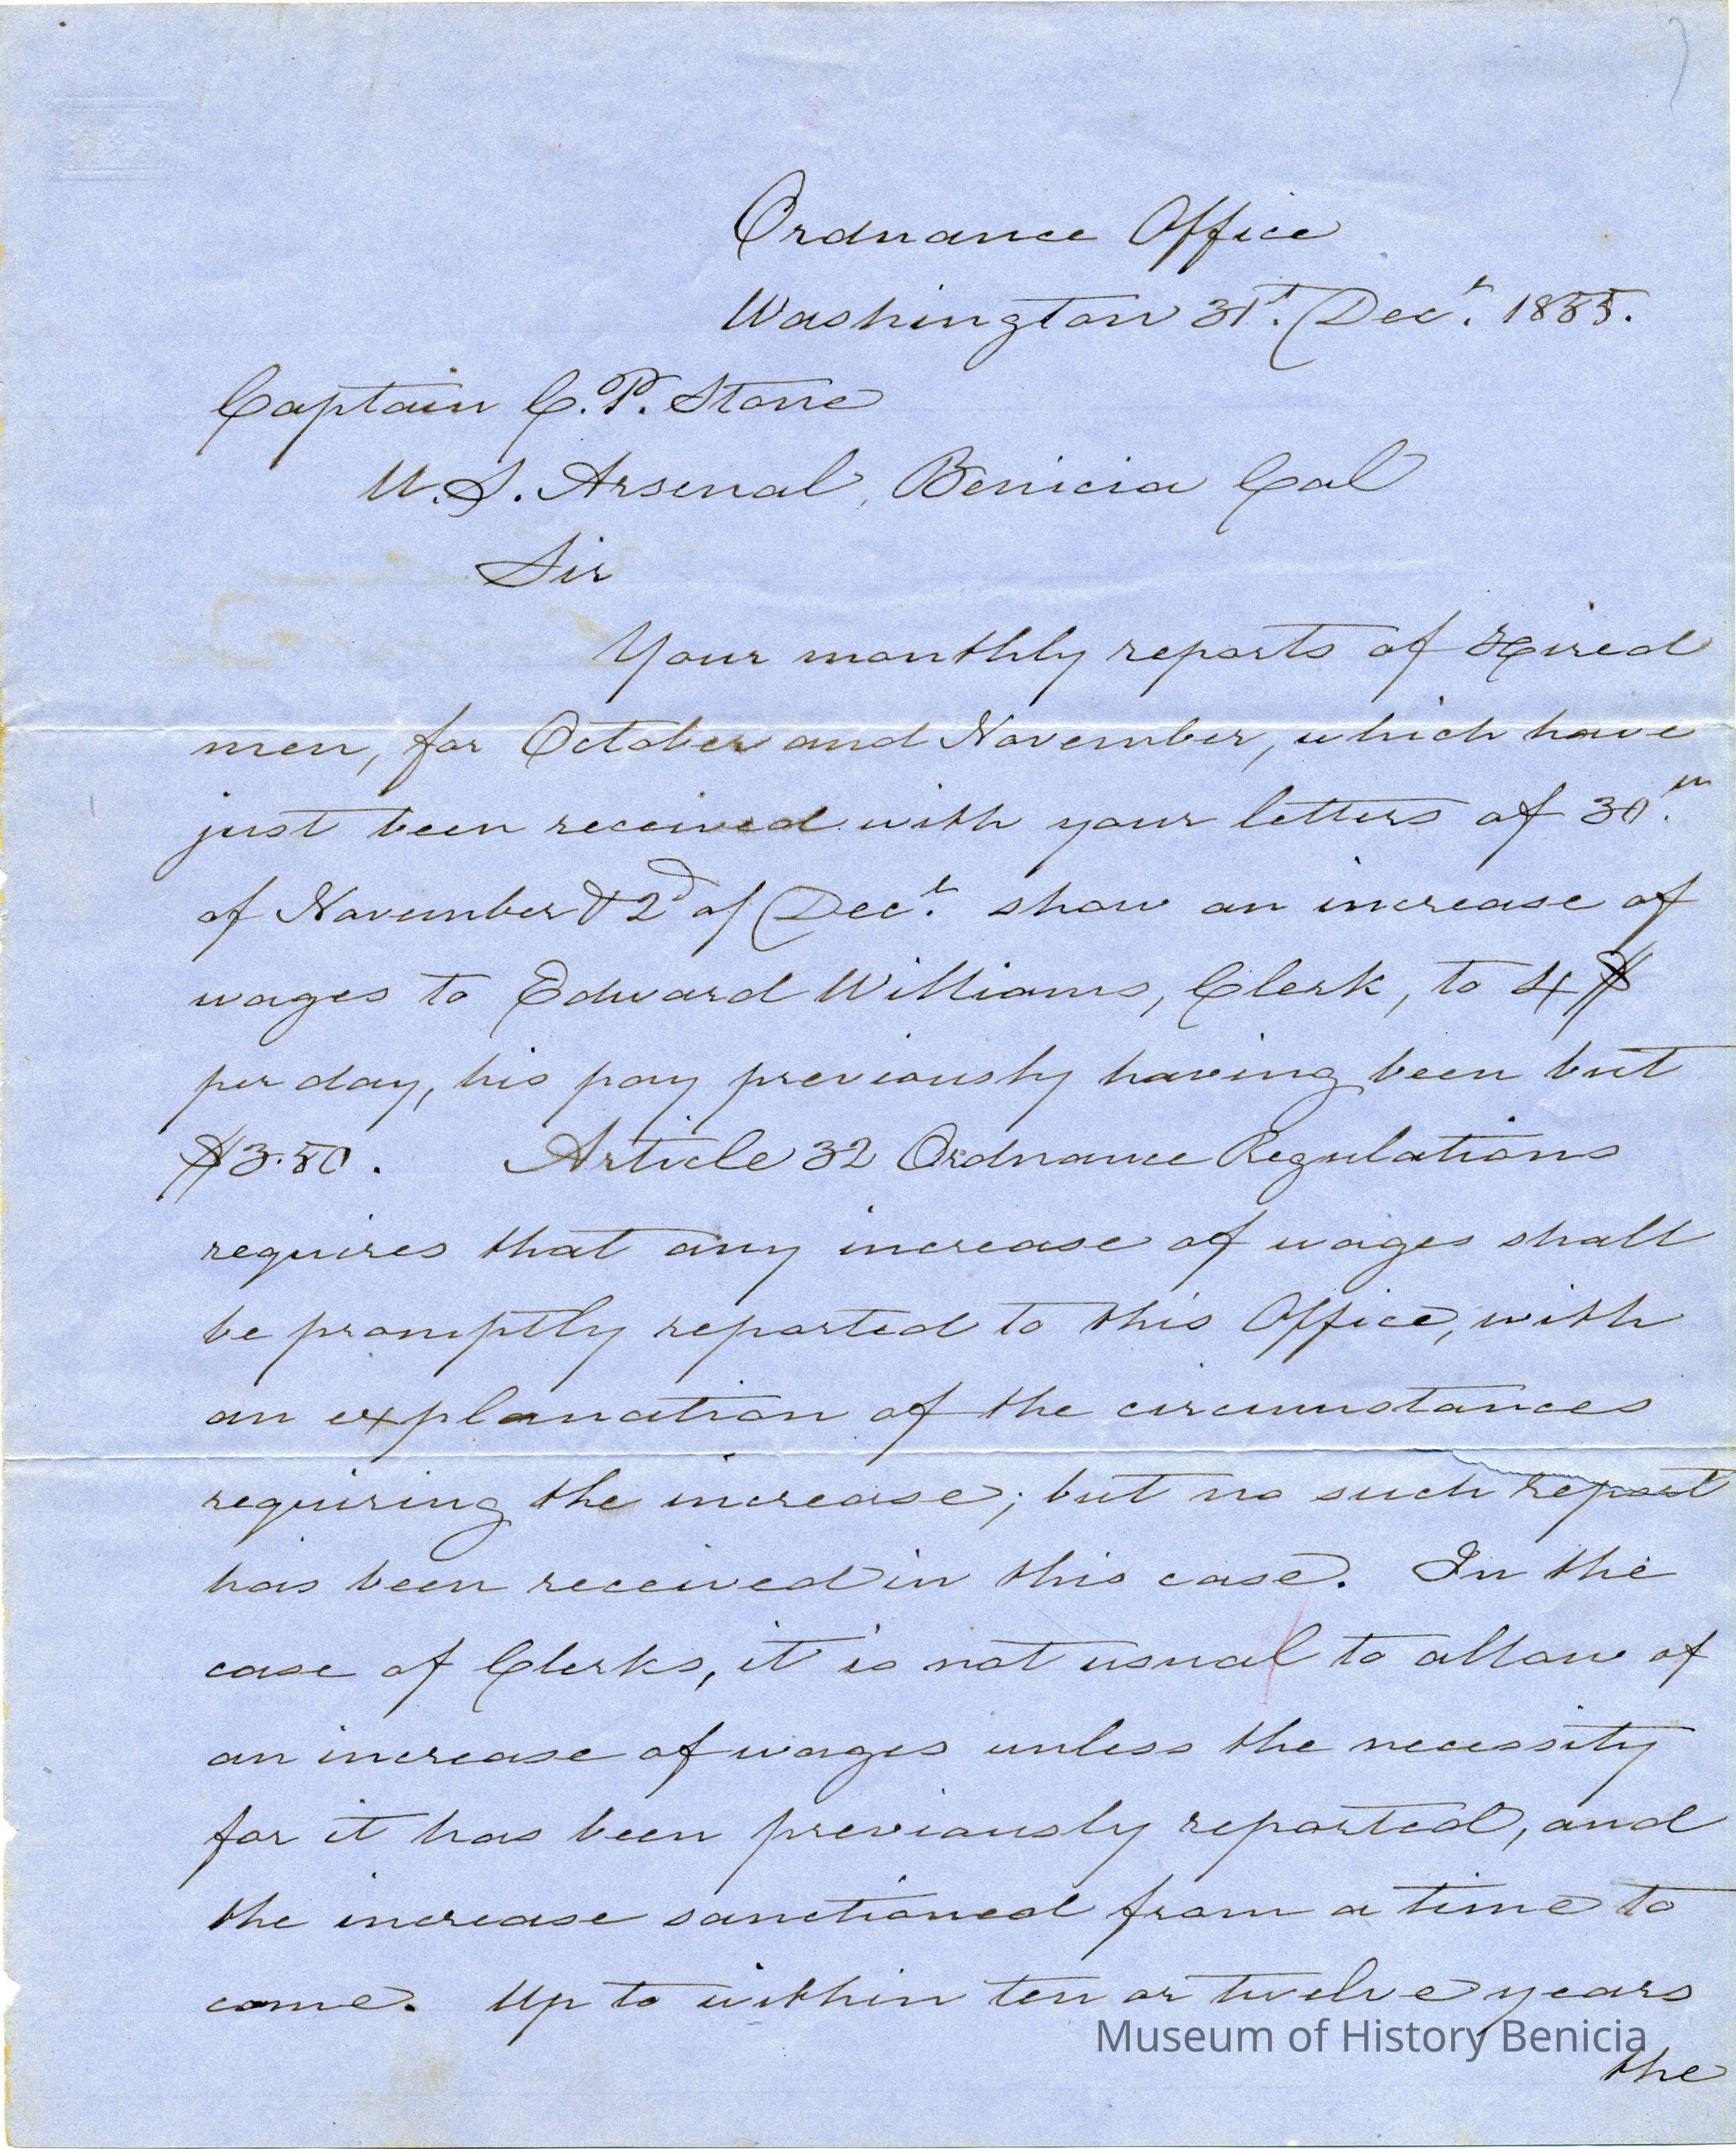 Ordnance Office
Washington 31st. Decr. 1855.
Captain C.P. Stone
U.S. Arsenal, Benicia Cal
Sir
Your monthly reports of Hired
men, for October and November, which have
just been received with your letters of 30th.
of November & 2d of Decr. show an increase of
wages to Edward Williams, Clerk, to 4$
per day, his pay previously having been but
$3.50. Article 32 Ordnance Regulations
requires that any increase of wages shall
be promptly reported to this Office, with
an explanation of the circumstances
requiring the increase; but no such report
has been received in this case. In the
case of Clerks, it is not usual to allow of
an increase of wages unless the necessity
for it has been previously reported, and
the increase sanctioned from a time to
come. Up to within ten or twelve years
Museum of History Benicia
the